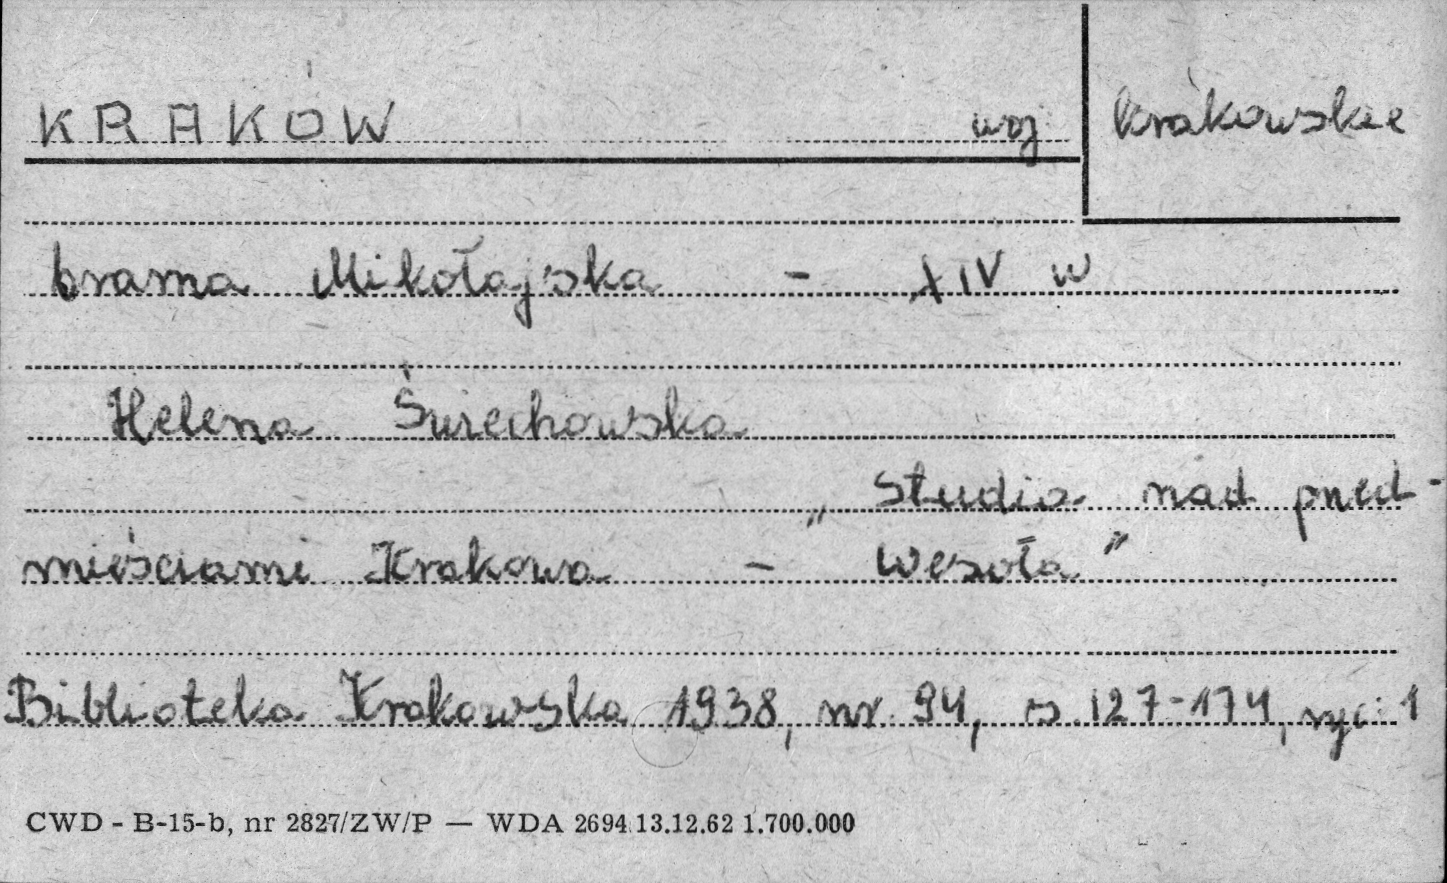 KRAKÓW woj krakowskie
brama Mikołajska - XIV w
Helena Świechowska
„Studia nad przed-
mieściami Krakowa - Wesoła”
Biblioteka Krakowska 1938, nr 94, s. 127-174, ryc. 1
CWD - B-15-b, nr 2827/ZW/P — WDA 2694 13.12.62 1.700.000